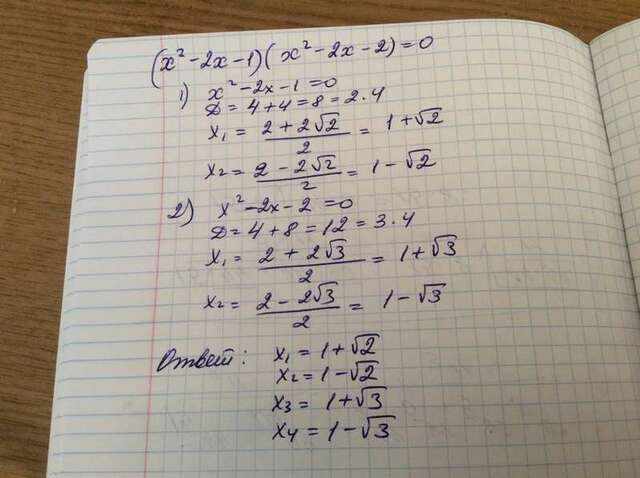 (x² - 2x - 1)(x² - 2x - 2) = 0
1) x² - 2x - 1 = 0
D = 4 + 4 = 8 = 2 · 4
x₁ = (2 + 2√2)/2 = 1 + √2
x₂ = (2 - 2√2)/2 = 1 - √2
2) x² - 2x - 2 = 0
D = 4 + 8 = 12 = 3 · 4
x₁ = (2 + 2√3)/2 = 1 + √3
x₂ = (2 - 2√3)/2 = 1 - √3
Ответ: x₁ = 1 + √2
x₂ = 1 - √2
x₃ = 1 + √3
x₄ = 1 - √3